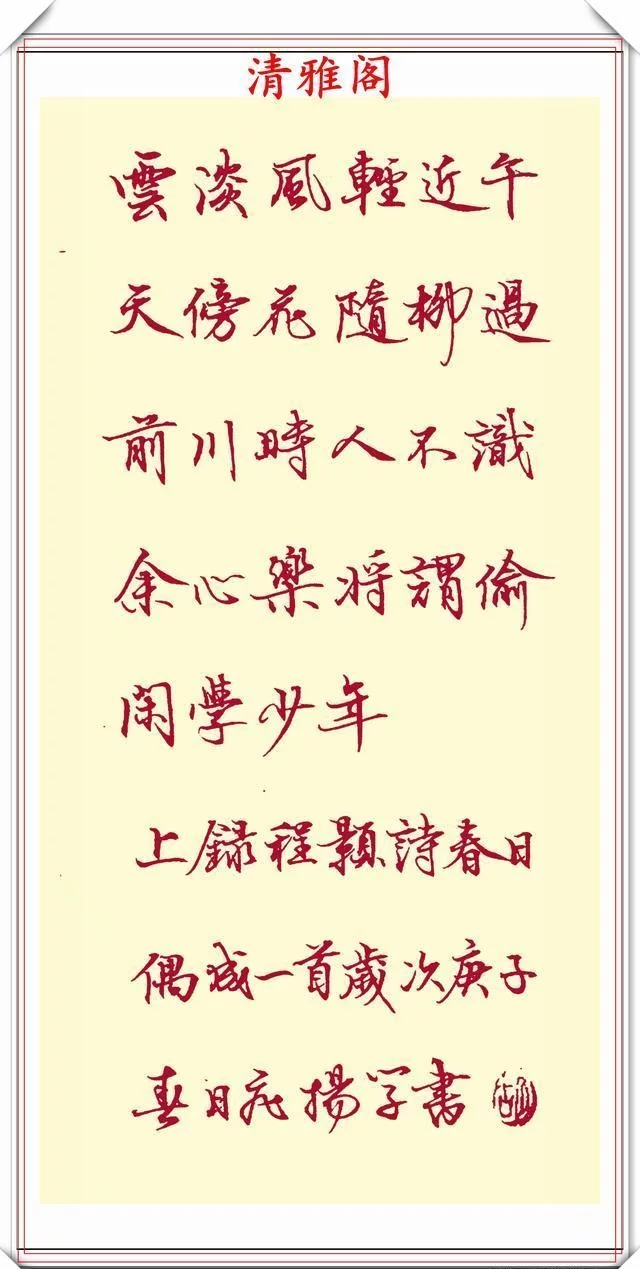 清雅阁
雲淡風輕近午
天傍花隨柳過
前川時人不識
余心樂將謂偷
閑學少年
上録程顥詩春日
偶成一首歲次庚子
春日花揚学書